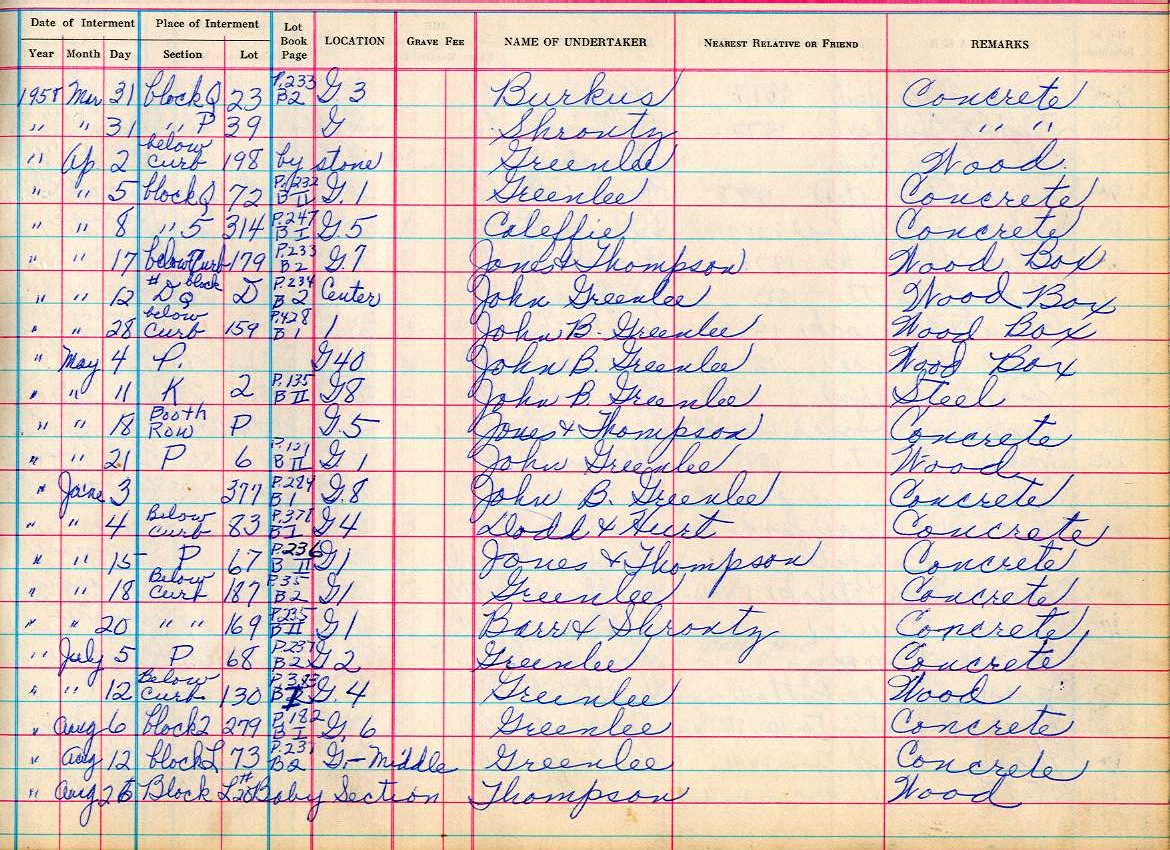 Date of Interment Place of Interment Lot Book Page LOCATION GRAVE FEE NAME OF UNDERTAKER NEAREST RELATIVE OR FRIEND REMARKS
Year Month Day Section Lot
1958 Mar 31 block Q 23 P. 233 B2 G 3 Burkus Concrete
" " 31 " P 39 G Shrontz " "
" Ap 2 below curb 198 by stone Greenlee Wood
" " 5 block Q 72 P. 232 B II G. 1 Greenlee Concrete
" " 8 " 5 314 P. 247 B I G. 5 Coleffie Concrete
" " 17 below Curb 179 P. 233 B2 G. 7 Jones & Thompson Wood Box
" " 12 # D block Q D P. 234 B 2 Center John Greenlee Wood Box
" " 28 below Curb 159 P. 428 B 1 1 John B. Greenlee Wood Box
" May 4 P. G 40 John B. Greenlee Wood Box
" " 11 K 2 P. 135 B II G 8 John B Greenlee Steel
" " 18 Booth Row P G. 5 Jones & Thompson Concrete
" " 21 P 6 B II G 1 John Greenlee Wood
" June 3 377 P. 284 B 1 G. 8 John B. Greenlee Concrete
" " 4 Below Curb 83 P. 378 B I G 4 Dodd & Hurt Concrete
" " 15 P 67 P. 236 B II G 1 Jones & Thompson Concrete
" " 18 Below Curb 187 P. 35 B2 G 1 Greenlee Concrete
" " 20 " " 169 P. 235 B II G 1 Barr & Shrontz Concrete
" July 5 P 68 P. 237 B2 G 2 Greenlee Concrete
" " 12 Below Curb 130 P. 383 B I G. 4 Greenlee Wood
" Aug 6 block 2 279 P. 182 B I G. 6 Greenlee Concrete
" Aug 12 block L 73 P. 237 B2 G. - Middle Greenlee Concrete
" Aug 26 Block L Baby Section Thompson Wood